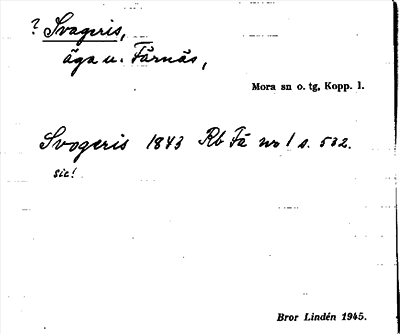 ? Svageris,
äga u. Färnäs,
Mora sn o. tg, Kopp. l.
Svogeris 1843 Rb Fä no 1 s. 532.
sic!
Bror Lindén 1945.